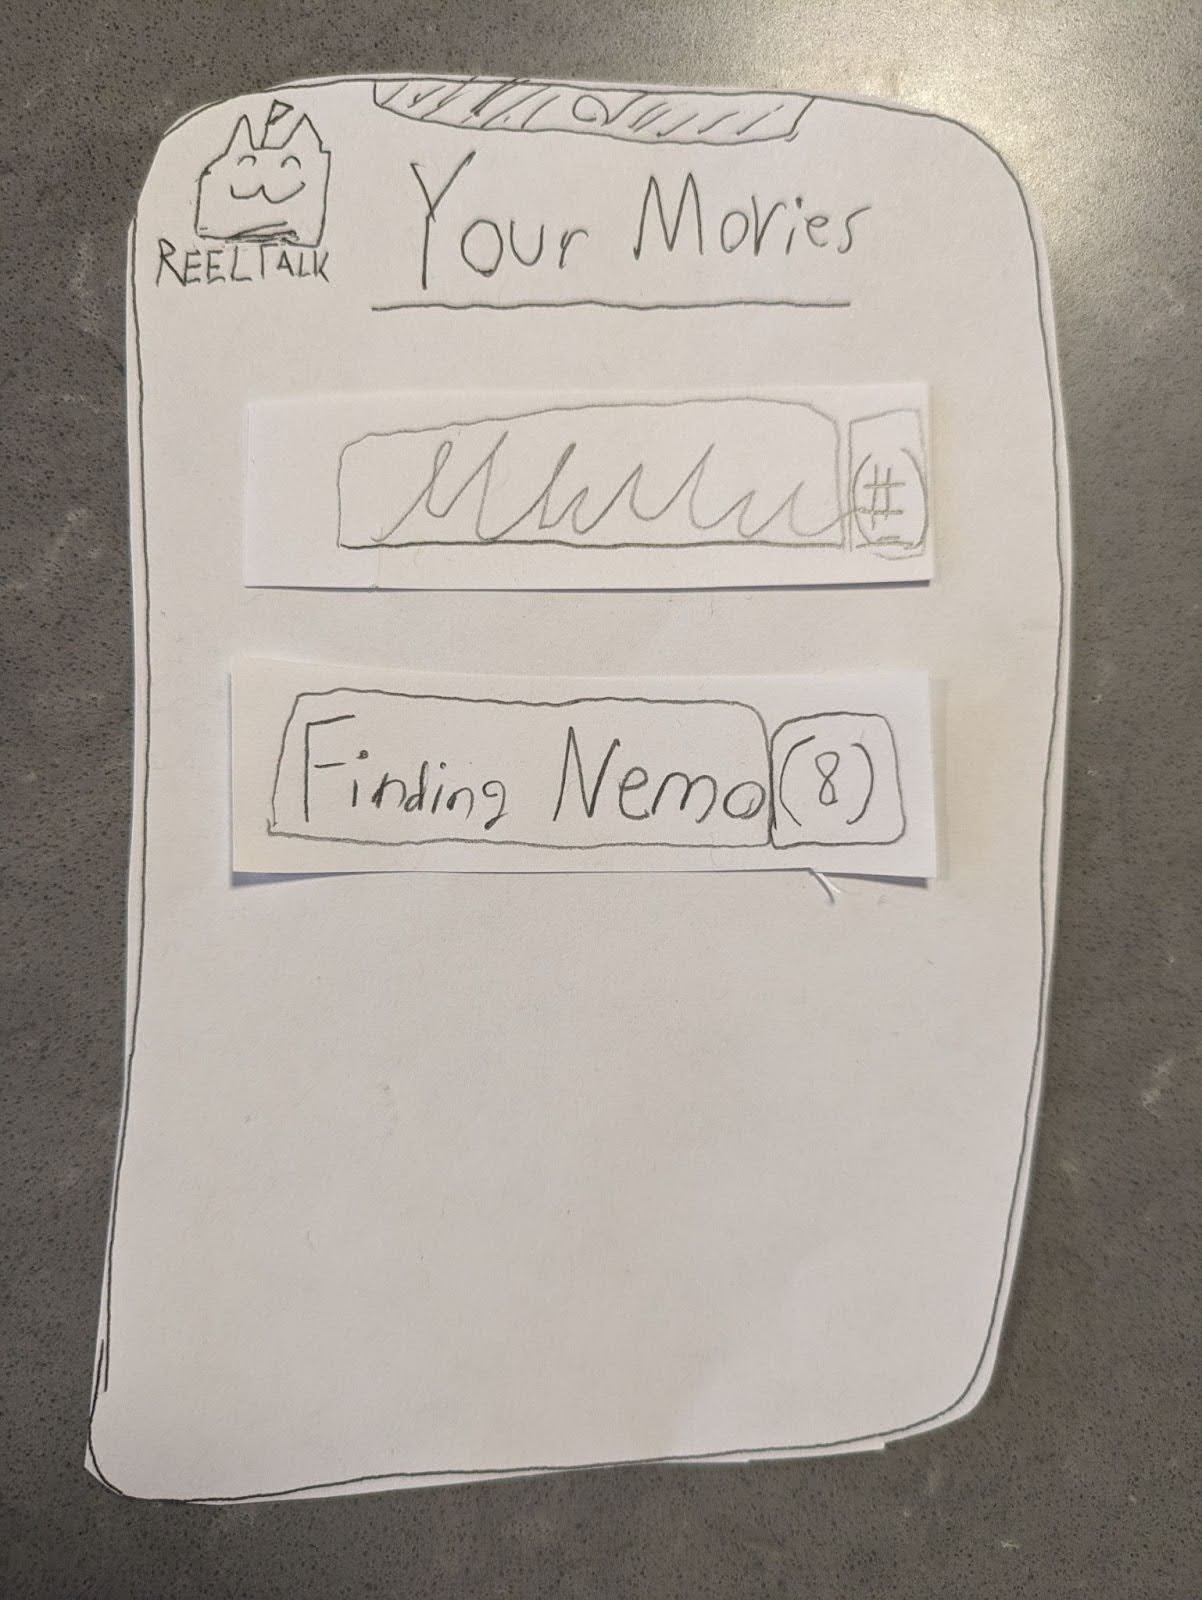 REELTALK
Your Movies
(#)
Finding Nemo (8)